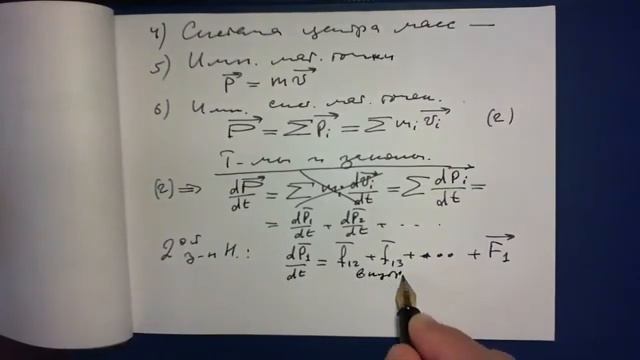 4) Система центра масс —
5) Имп. мат. точки
P⃗ = mv⃗
6) Имп. сист. мат. точек.
P⃗ = ∑P⃗ᵢ = ∑mᵢv⃗ᵢ (2)
Т-мы и законы.
(2) ⇒ dP⃗/dt = ∑mᵢ dv⃗ᵢ/dt = ∑ dP⃗ᵢ/dt =
= dP̄₁/dt + dP̄₂/dt + ...
2ой з-н Н.: dP̄₁/dt = f̄₁₂ + f̄₁₃ + ... + F⃗₁
внут